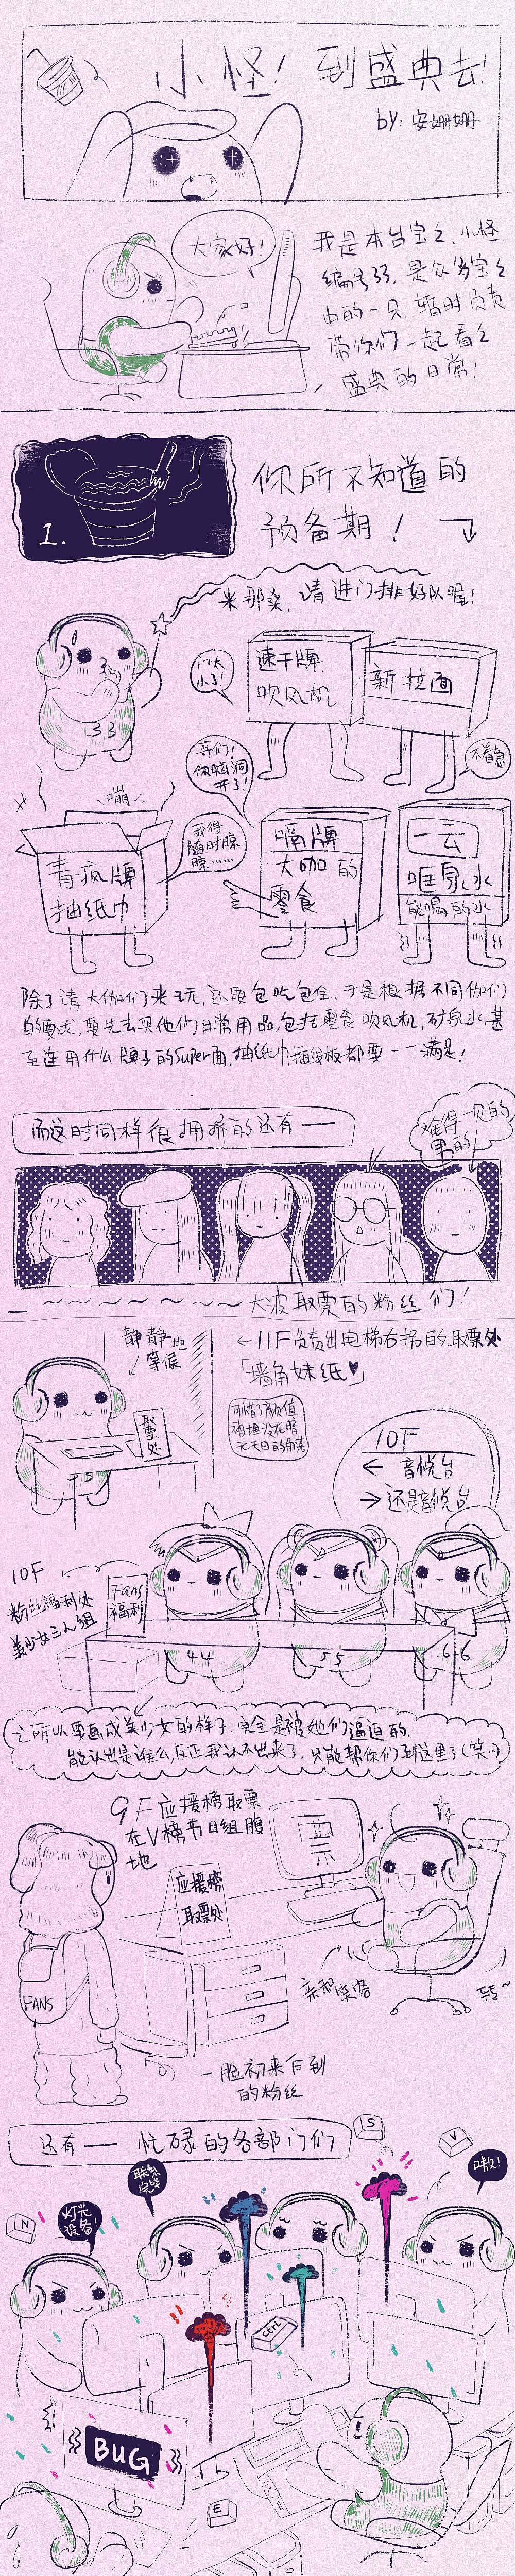 小怪！到盛典去！
by：安姗姗
大家好！
我是本台宝宝、小怪
编号33，是众多宝宝
中的一只，暂时负责
带你们一起看看
盛典的日常！
1.
你所不知道的
预备期！
米那桑，请进门排好队喔！
33
门太
小了！
速干牌
吹风机
新拉面
不着急
嘣
哥们！
你脑洞
开了！
我得
随时晾
晾……
青疯牌
抽纸巾
嗝牌
大咖的
零食
一云
哐泉水
能喝的水
除了请大咖们来玩，还要包吃包住，于是根据不同咖们
的要求，要先去买他们日常用品，包括零食、吹风机、矿泉水，甚
至连用什么牌子的super面，抽纸巾，插线板都要一一满足！
而这时同样很拥挤的还有——
难得一见的
男的！
大波取票的粉丝们！
静静地
等候
取票处
←11F负责出电梯右拐的取票处
「墙角妹纸♥」
可惜了颜值
被埋没在暗
无天日的角落
10F
← 音悦台
→ 还是音悦台
10F
粉丝福利处
美少女三人组
Fans
福利
44
55
66
之所以要画成美少女的样子，完全是被她们逼迫的，
能认出是谁么，反正我认不出来了，只能帮你们到这里了（笑：）
9F应援榜取票
在V榜节目组腹
地
票
应援榜
取票处
FANS
亲和笑容
转~
一脸初来乍到
的粉丝
还有——忙碌的各部门们
S
V
N
灯光
设备
嗷！
CTRL
BUG
E